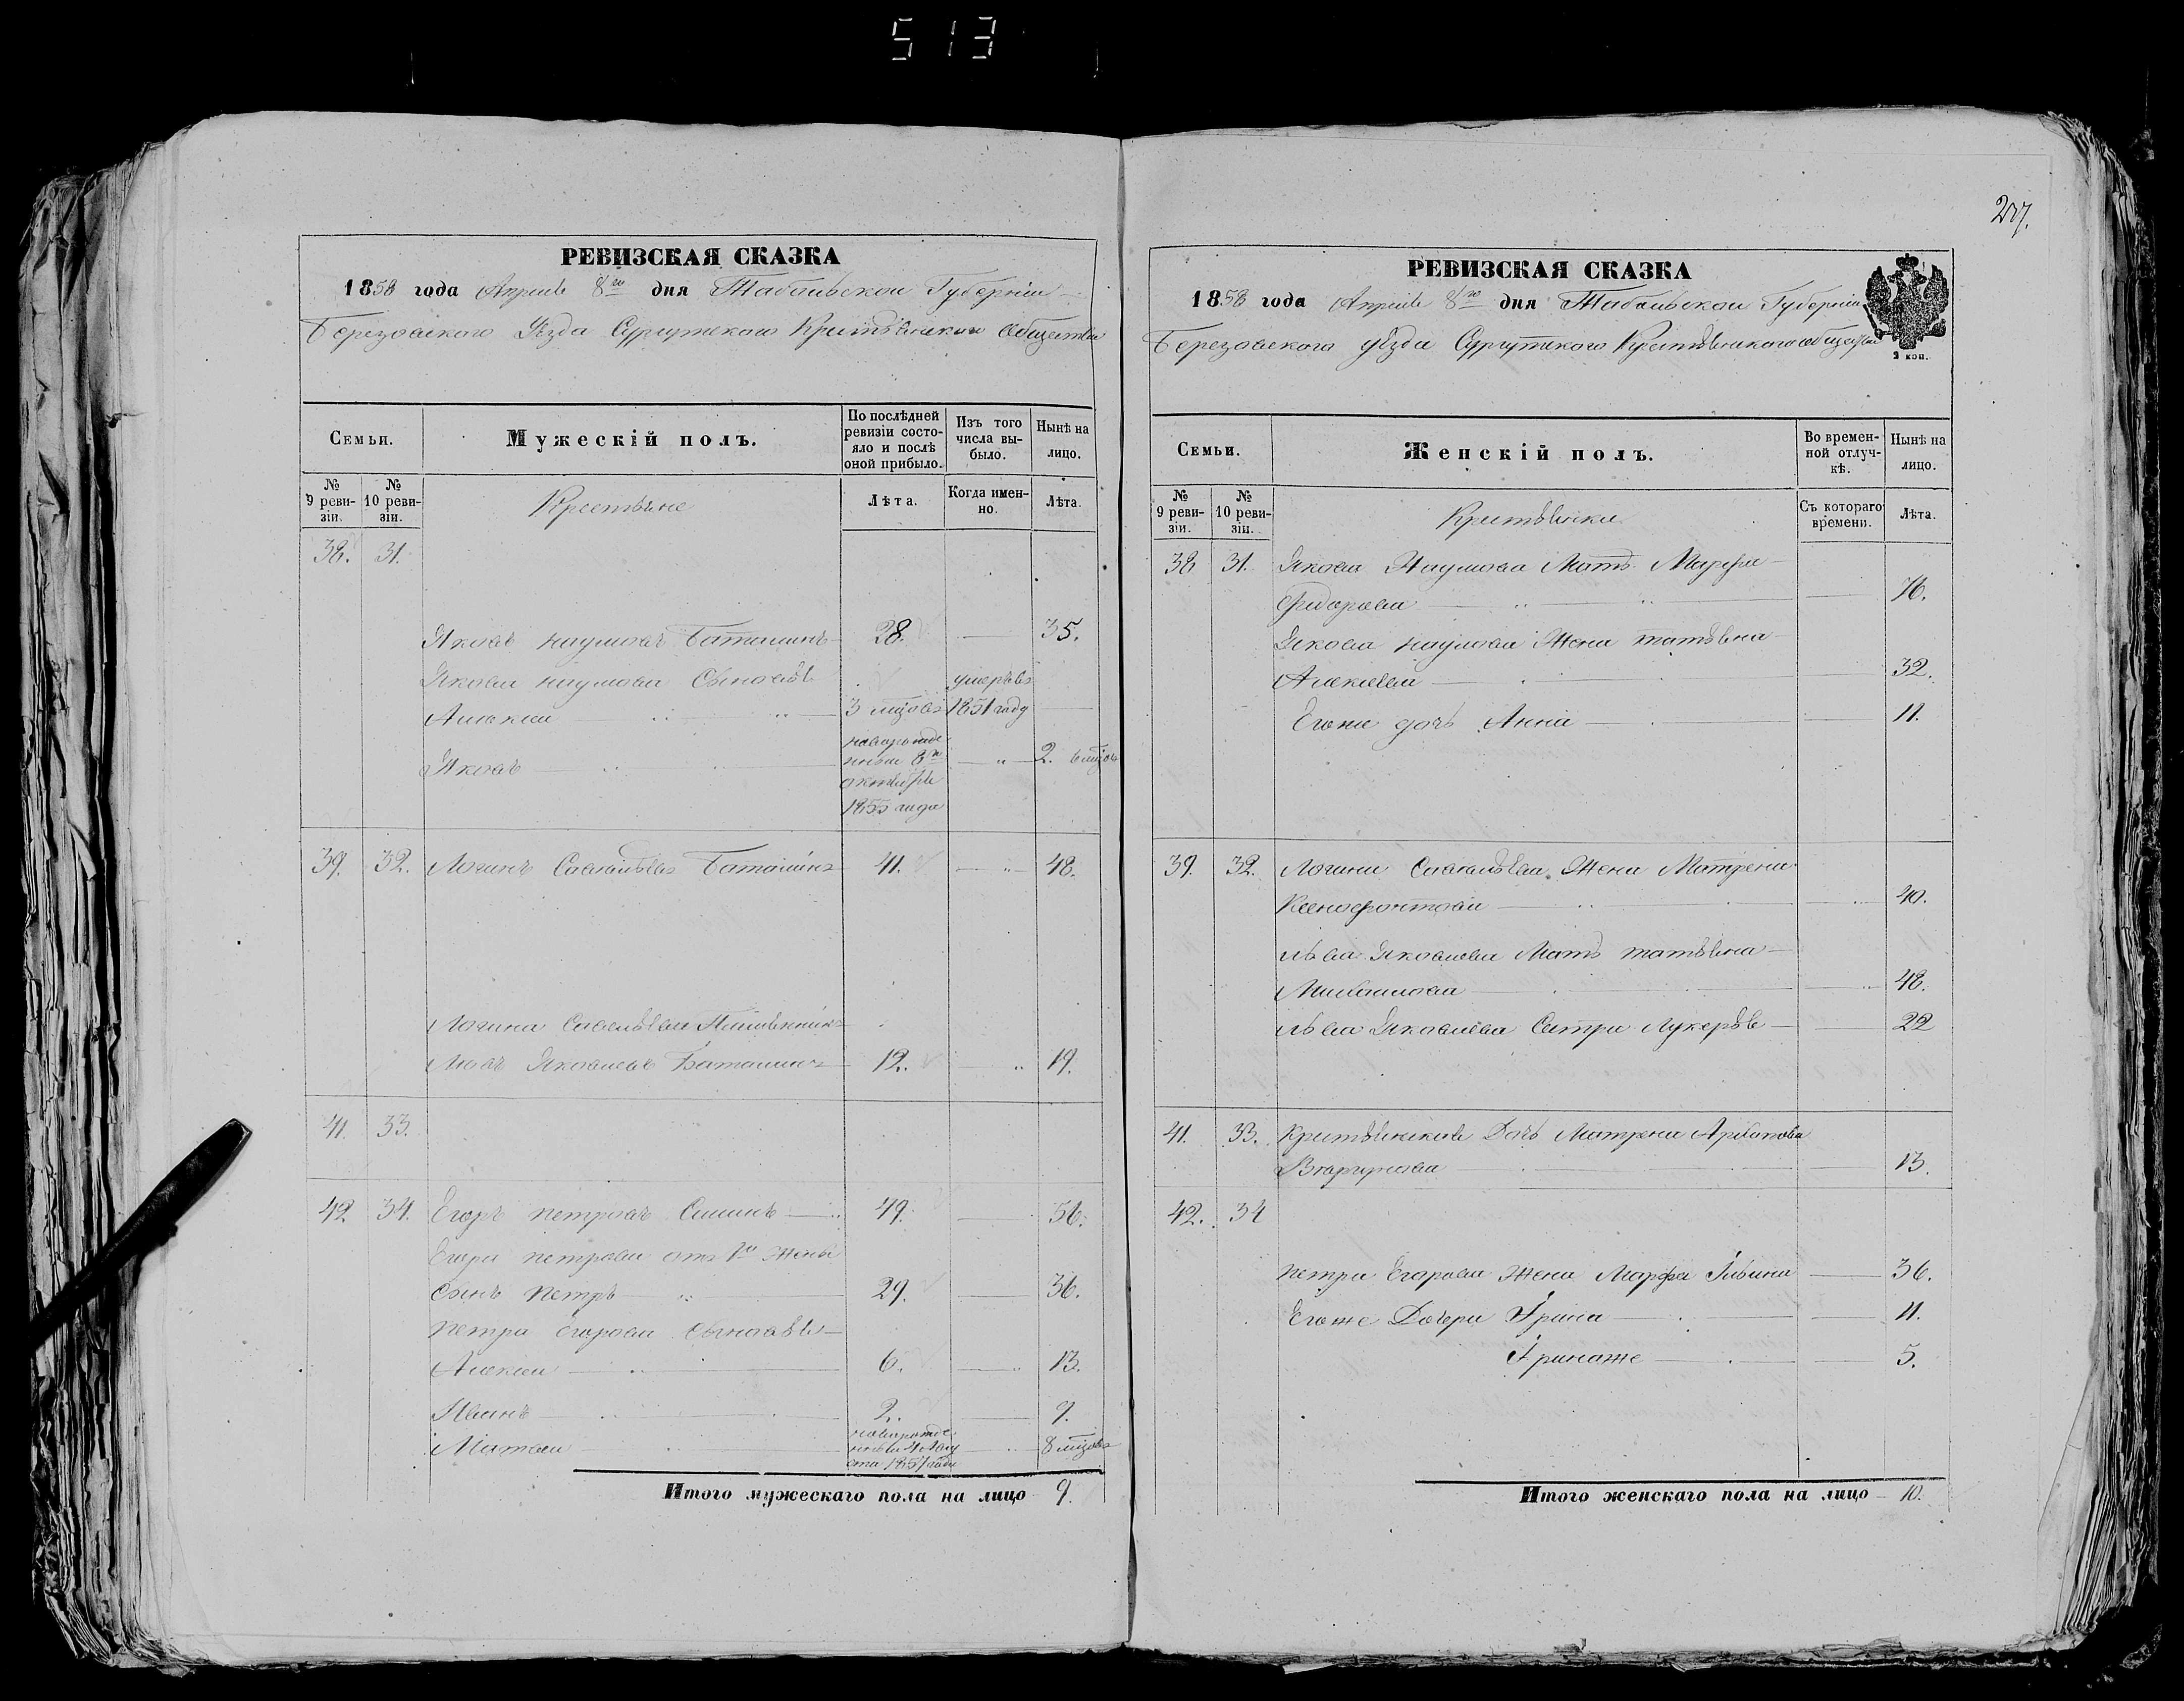 513
РЕВИЗСКАЯ СКАЗКА
1858 года Апреля 8го дня Табольской Губерніи
Березовского Уѣзда Сургутского Крестьянского Общества
Семьи.
Мужескій полъ.
По послѣдней ревизіи состояло и послѣ оной прибыло.
Изъ того числа выбыло.
Нынѣ на лицо.
№ 9 ревизіи.
№ 10 ревизіи.
Крестьяне
Лѣта.
Когда именно.
Лѣта.
38. 31.
Яковъ наумовъ Баталинъ 28. 35.
Якова наумова Сыновья умеръ въ
Алексей 3 мцовъ 1851 году
Яковъ новорожденный 8го октября 1855 года " 2. 6 мцов
39. 32. Логинъ Савельевъ Баталинъ 41. " 48.
Логина Савельева Племянникъ
Левъ Яковлевъ Баталинъ 12. " 19.
41. 33.
42 34. Егоръ петровъ Силинъ 49. 56.
Егора петрова отъ 1й жены
Сынъ петръ 29. 36.
петра Егорова сыновья
Алексей 6. " 13.
Иванъ 2. 9.
Матвей новорожденный 4 Августа 1857 года 8 мцовъ
Итого мужескаго пола на лицо 9.
237.
РЕВИЗСКАЯ СКАЗКА
1858 года Апреля 8го дня Табольской Губерніи
Березовского уѣзда Сургутского Крестьянского общества
2 коп.
Семьи.
Женскій полъ.
Во временной отлучкѣ.
Нынѣ на лицо.
№ 9 ревизіи.
№ 10 ревизіи.
Крестьянки
Съ котораго времени.
Лѣта.
38 31. Якова Наумова Мать Марфа
Федорова 76.
Якова наумова Жена татьяна
Алексеева 32.
Егоже дочь Анна 11.
39. 32. Логина Савельева Жена Матрена
Ксенофонтова 40.
Льва Яковлева Мать татьяна
Михайлова 48.
Льва Яковлева Сестра Лукерья 22
41. 33. Крестьянская Дочь Матрена Архипова
13.
42. 34
петра Егорова Жена Марфа Ильина 36.
Егоже Дочери Ірина 11.
Іринаже 5.
Итого женскаго пола на лицо 10.